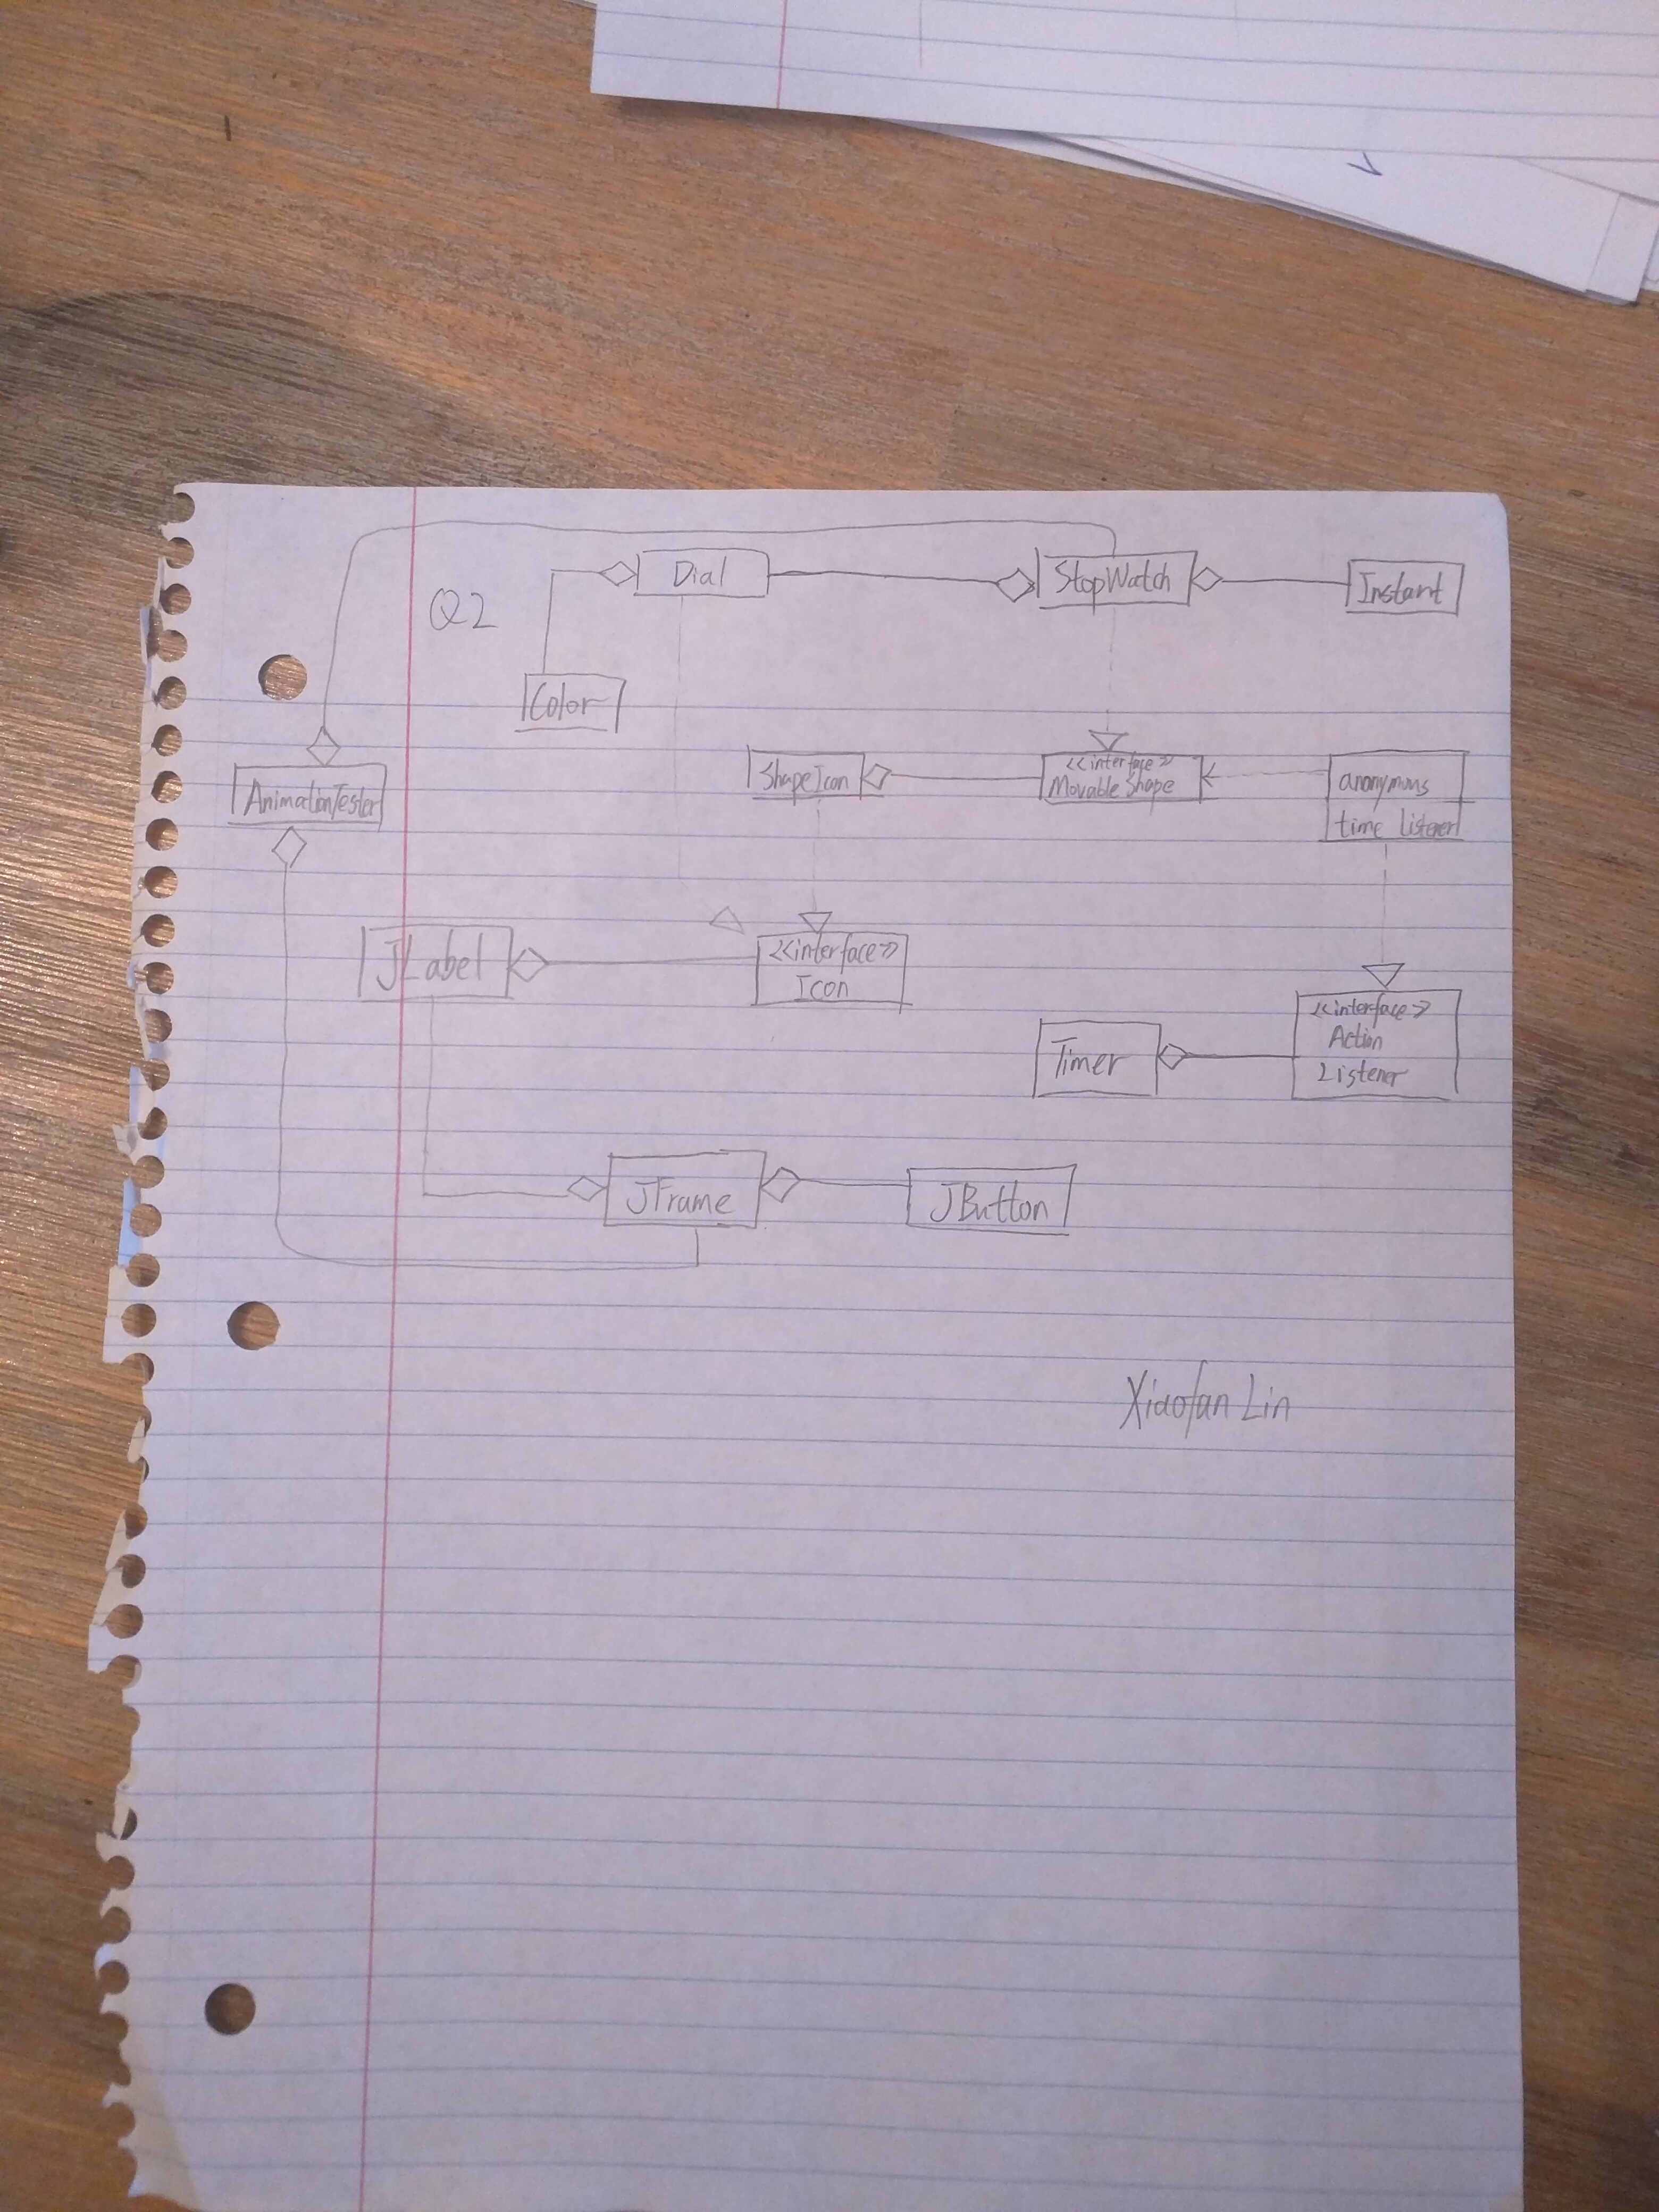 Dial
StopWatch
Instant
Q2
Color
AnimationTester
ShapeIcon
<<interface>>
Movable Shape
anonymous
time listener
JLabel
<<interface>>
Icon
Timer
<<interface>>
Action
Listener
JFrame
JButton
Xiaofan Lin